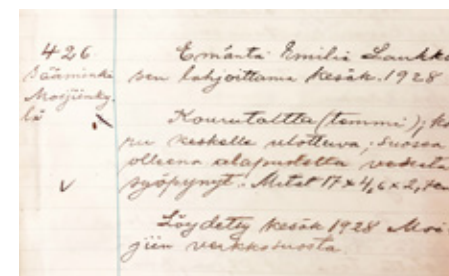 426
Sääminki
Mosjienky-
lä
Emäntä Emilia Laukko
sen lahjoittama kesäk. 1928
Kourutaltta (tammi); ko
ru keskelle ulottuva; suossa
olleena alapuolelta vedestä
syöpynyt. Mitat 17 x 4,6 x 2,7 cm
Löydetty kesäk 1928 Mos-
jien verkkosuosta.